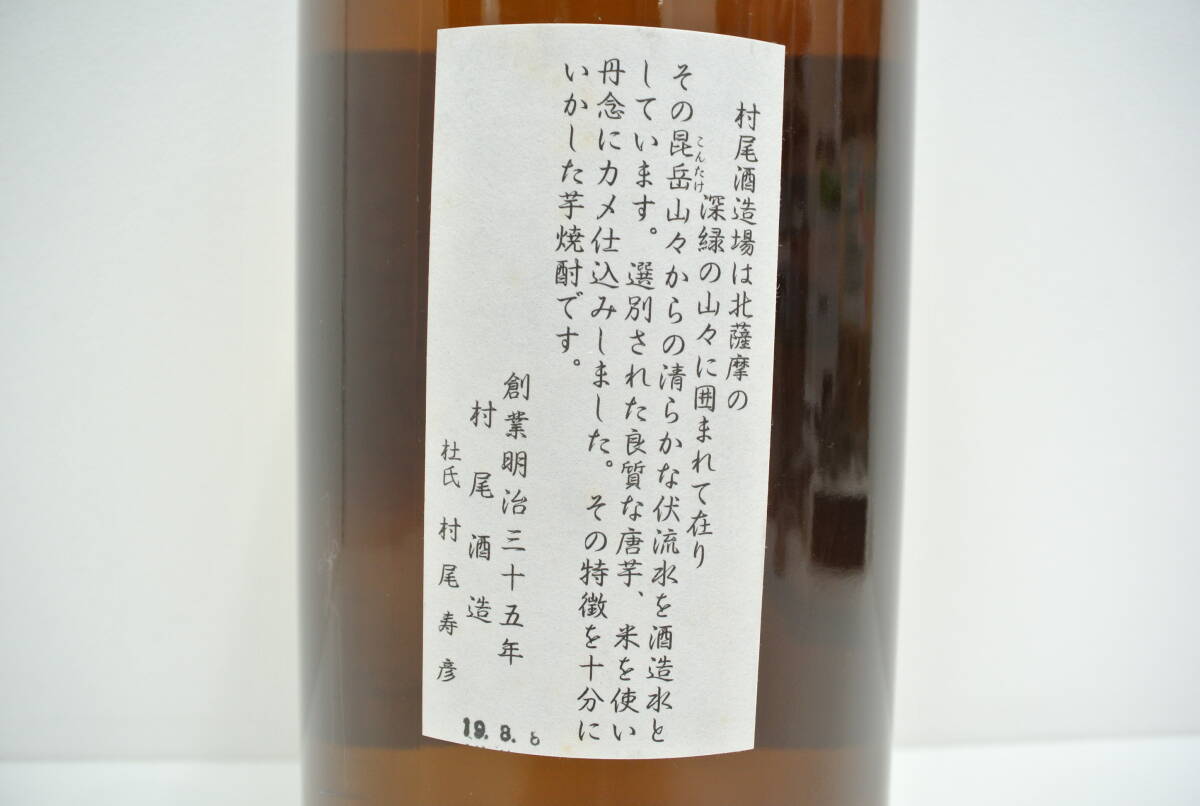 村尾酒造場は北薩摩の
深緑の山々に囲まれて在り
こんたけ
その昆岳山々からの清らかな伏流水を酒造水と
しています。選別された良質な唐芋、米を使い
丹念にカメ仕込みしました。その特徴を十分に
いかした芋焼酎です。
創業明治三十五年
村尾酒造
杜氏 村尾寿彦
19.8.